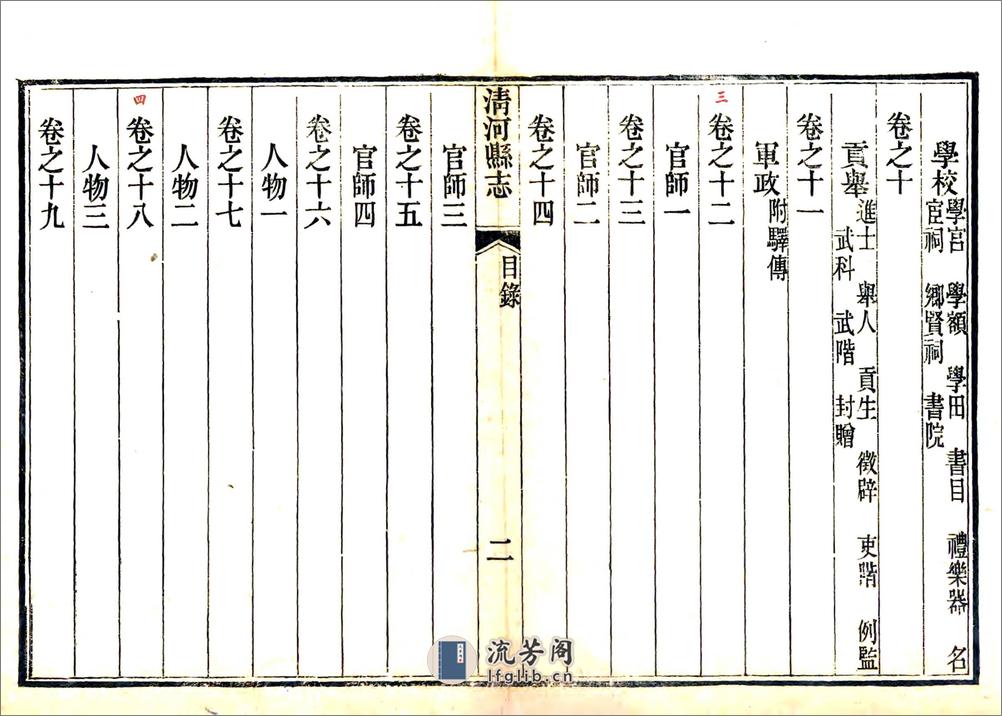 學校學宮 學額 學田 書目 禮樂器 名
宦祠 鄉賢祠 書院
卷之十
貢舉進士 舉人 貢生 徵辟 吏階 例監
武科 武階 封贈
卷之十一
軍政附驛傳
三
卷之十二
官師一
卷之十三
官師二
卷之十四
清河縣志
目錄
二
官師三
卷之十五
官師四
卷之十六
人物一
卷之十七
人物二
四
卷之十八
人物三
卷之十九
流芳阁
lfglib.cn